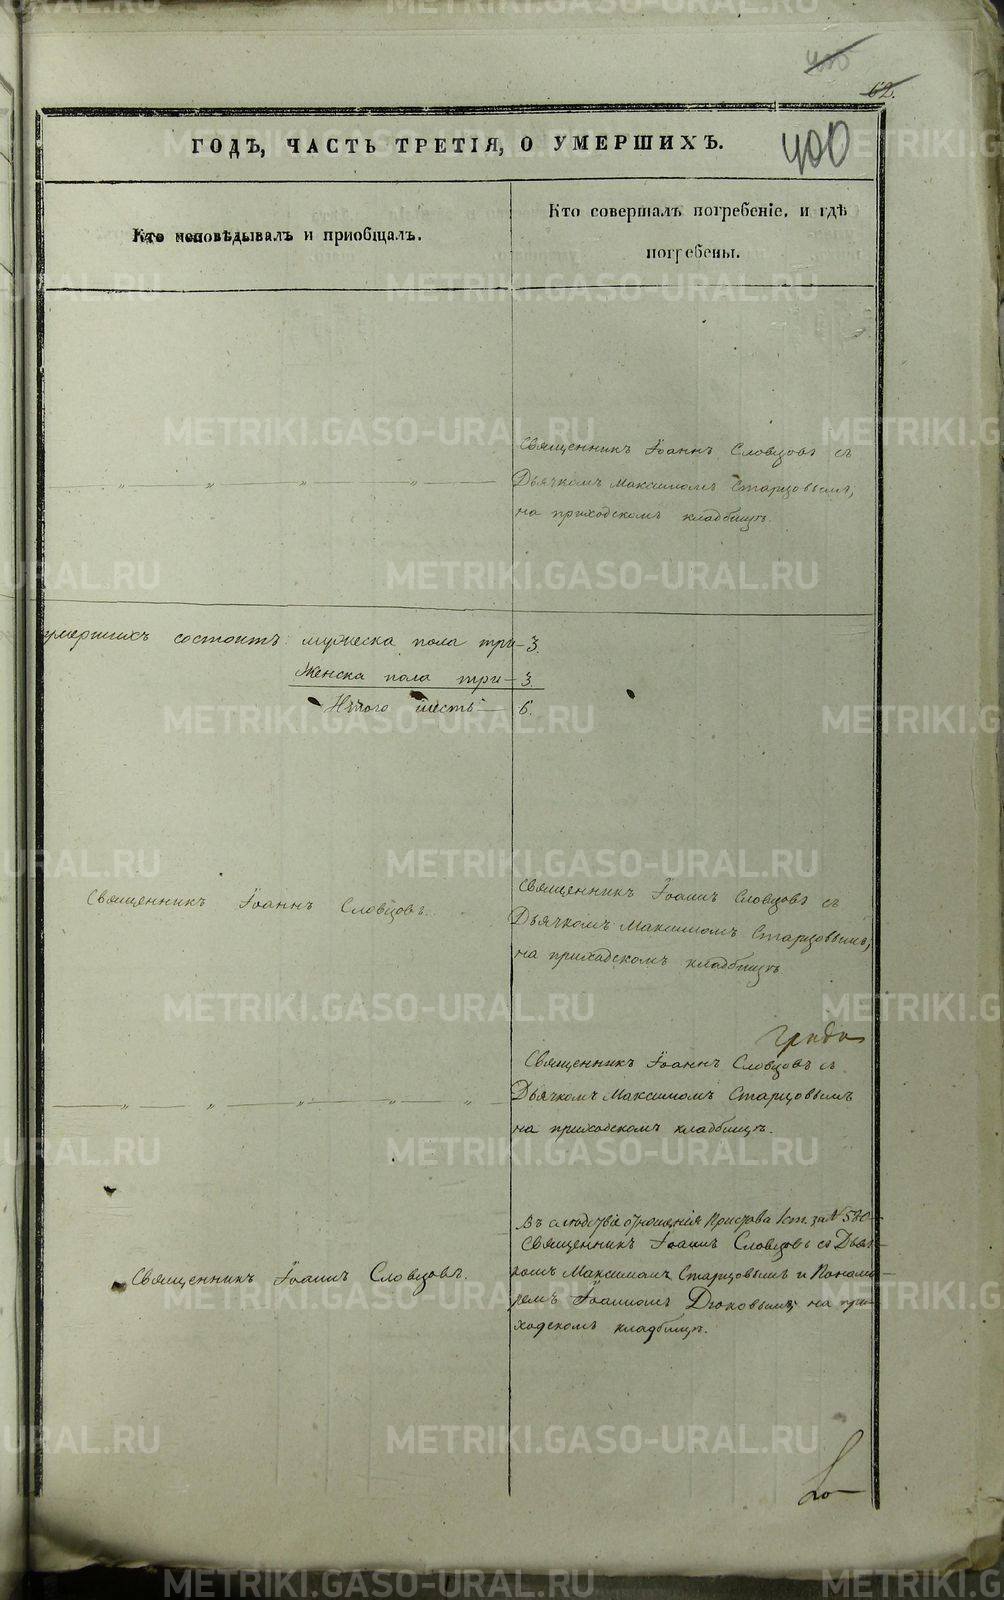 62.
400
ГОДЪ, ЧАСТЬ ТРЕТІЯ, О УМЕРШИХЪ.
Кто исповѣдывалъ и пріобщалъ.
Кто совершалъ погребеніе, и гдѣ
погребены.
Священникъ Іоаннъ Словцовъ съ
Дьячкомъ Максимомъ Старцовымъ,
на приходскомъ кладбищѣ.
умершихъ состоитъ мужеска пола три— 3.
Женска пола три— 3.
Итого шесть— 6.
Священникъ Іоаннъ Словцовъ.
Священникъ Іоаннъ Словцовъ съ
Дьячкомъ Максимомъ Старцовымъ,
на приходскомъ кладбищѣ
Священникъ Іоаннъ Словцовъ съ
Дьячкомъ Максимомъ Старцовымъ
на приходскомъ кладбищѣ.
Въ слѣдствіе отношенія Пристава 1 ст. за №580
Священникъ Іоаннъ Словцовъ.
Священникъ Іоаннъ Словцовъ съ Дьяч-
комъ Максимомъ Старцовымъ и Понама-
ремъ Іоанномъ Дюковымъ, на при-
ходскомъ кладбищѣ.
METRIKI.GASO-URAL.RU